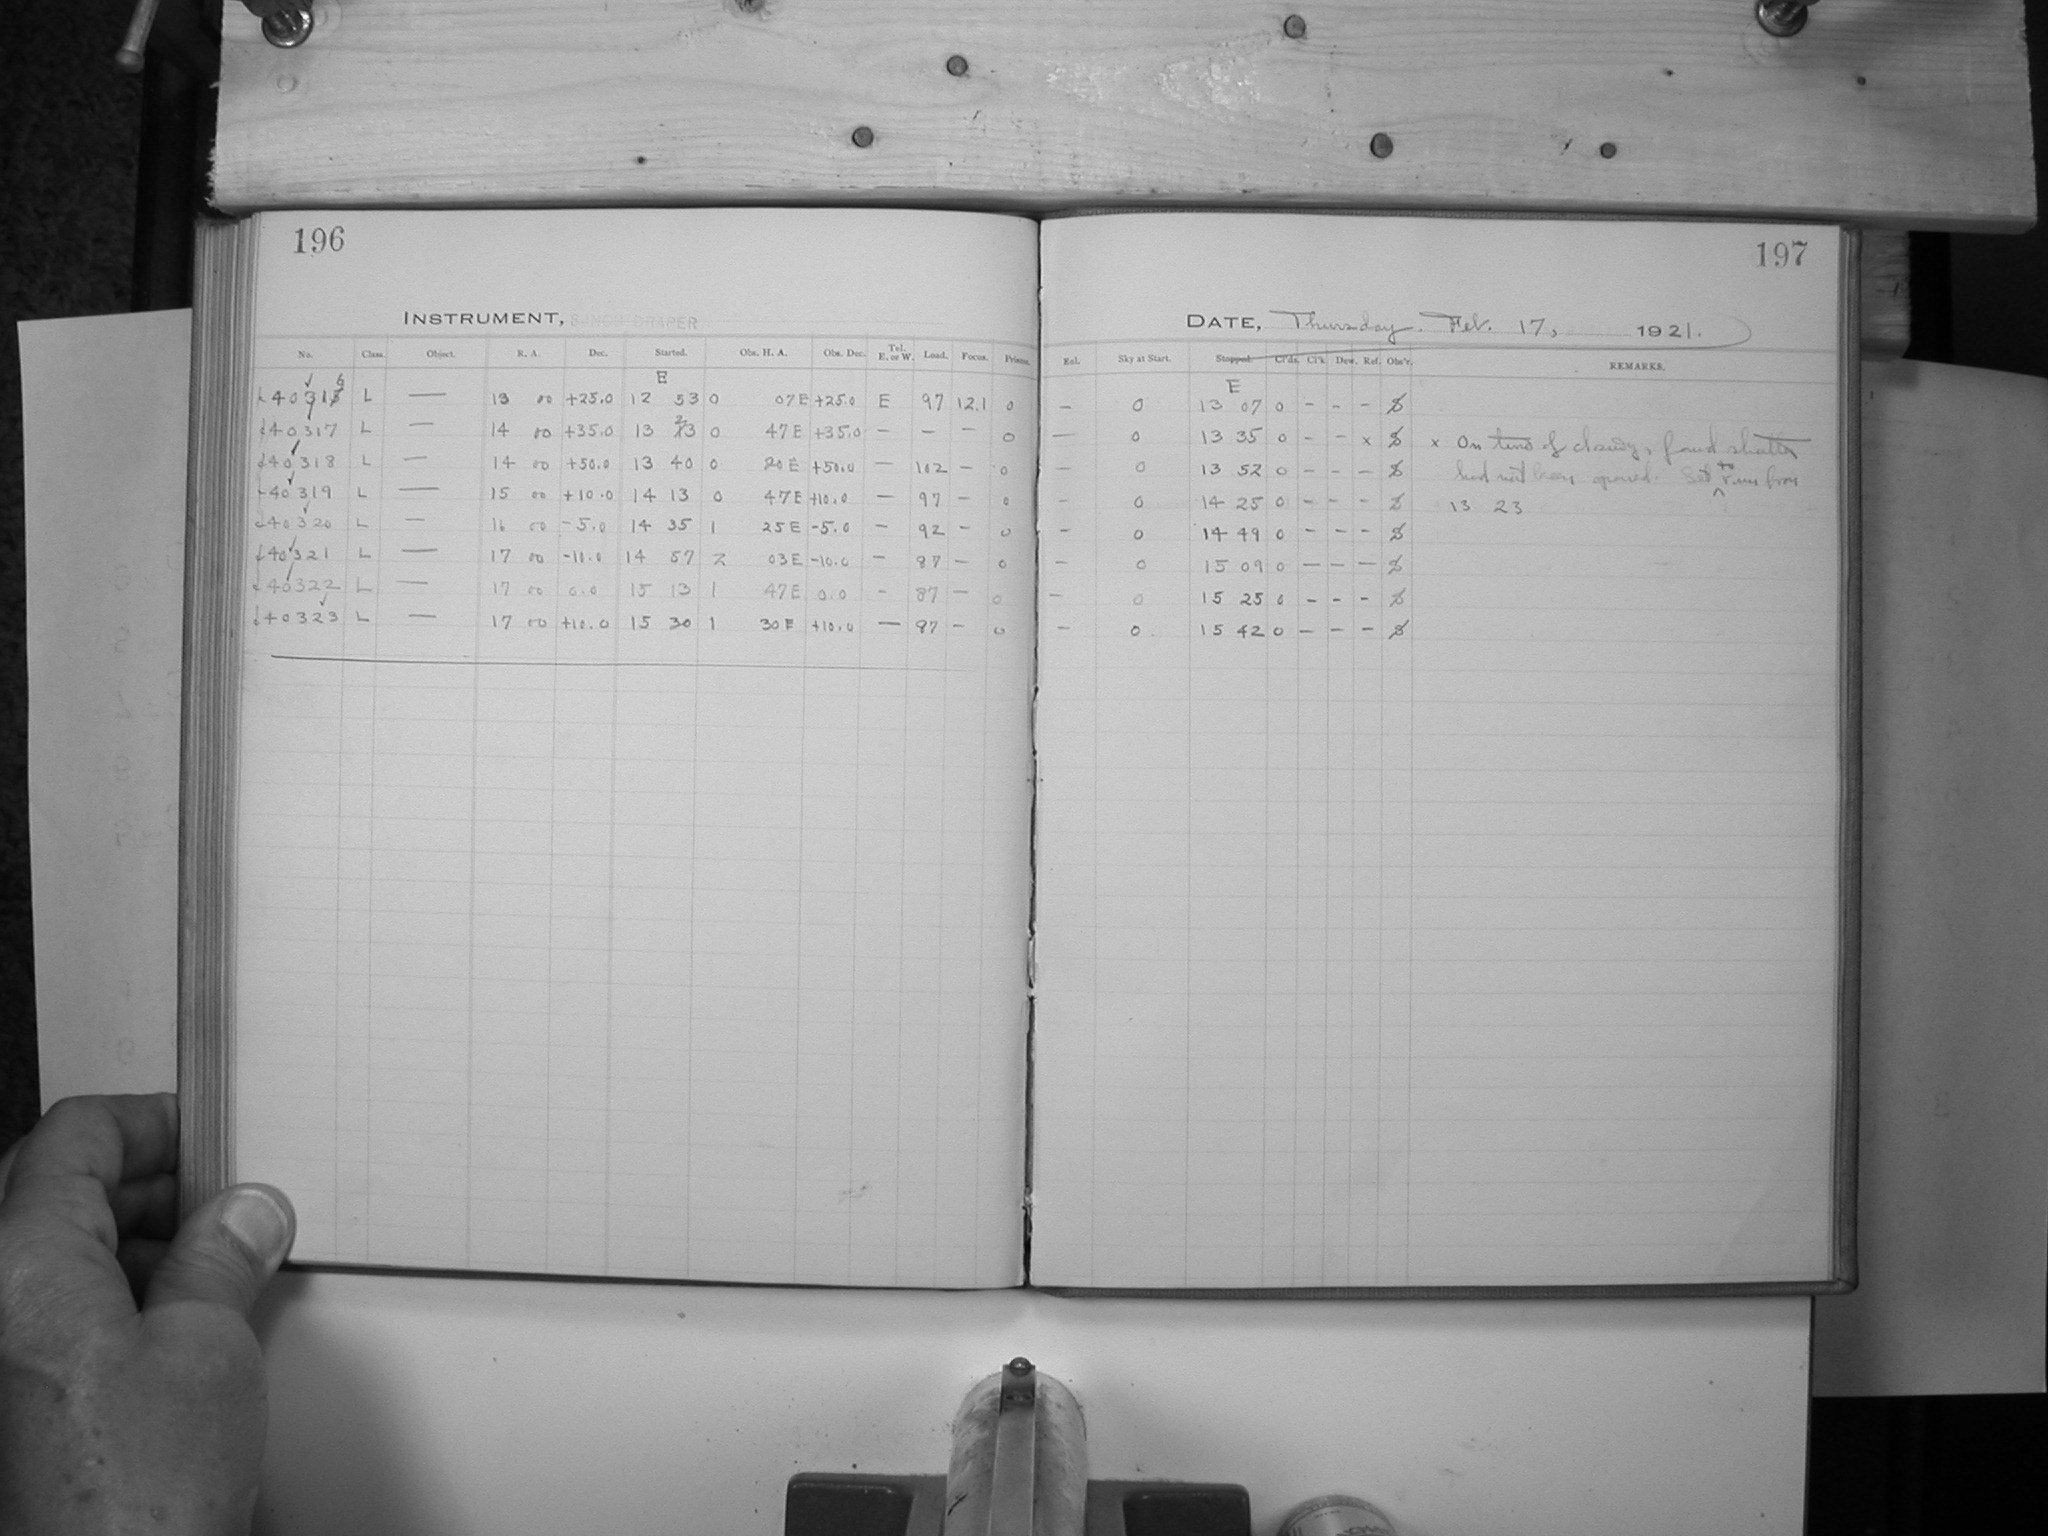 196
INSTRUMENT, 8-INCH DRAPER
No. Class. Object. R. A. Dec. Started. Obs. H. A. Obs. Dec. Tel. E. or W. Load. Focus. Prisms.
E
40316 L — 13 00 +25.0 12 53 0 07 E +25.0 E 97 12.1 0
40317 L — 14 00 +35.0 13 23 0 47 E +35.0 — — — 0
40318 L — 14 00 +50.0 13 40 0 20 E +50.0 — 102 — 0
40319 L — 15 00 +10.0 14 13 0 47 E +10.0 — 97 — 0
40320 L — 16 00 -5.0 14 35 1 25 E -5.0 — 92 — 0
40321 L — 17 00 -10.0 14 57 2 03 E -10.0 — 87 — 0
40322 L — 17 00 0.0 15 13 1 47 E 0.0 - 87 — 0
40323 L — 17 00 +10.0 15 30 1 30 E +10.0 — 87 - 0
197
DATE, Thursday. Feb. 17, 1921.
Enl. Sky at Start. Stopped. Cl'ds. Cl'k. Dew. Ref. Obs'r. REMARKS.
E
- 0 13 07 0 - - - S
— 0 13 35 0 - - x S x On time of closing, found shutter
- 0 13 52 0 — — — S had not been opened. Set to run from
- 0 14 25 0 - - - S 13 23
- 0 14 49 0 — — — S
- 0 15 09 0 — — — S
- 0 15 25 0 - - - S
- 0 15 42 0 — — — S